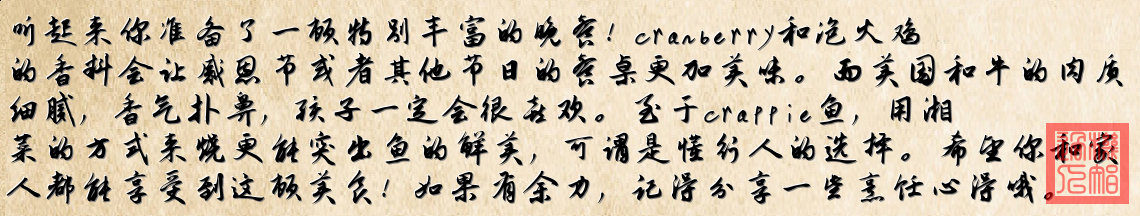 听起来你准备了一顿特别丰富的晚餐！cranberry和泡火鸡
的香料会让感恩节或者其他节日的餐桌更加美味。而美国和牛的肉质
细腻，香气扑鼻，孩子一定会很喜欢。至于crappie鱼，用湘
菜的方式来烧更能突出鱼的鲜美，可谓是懂行人的选择。希望你和家
人都能享受到这顿美食！如果有余力，记得分享一些烹饪心得哦。